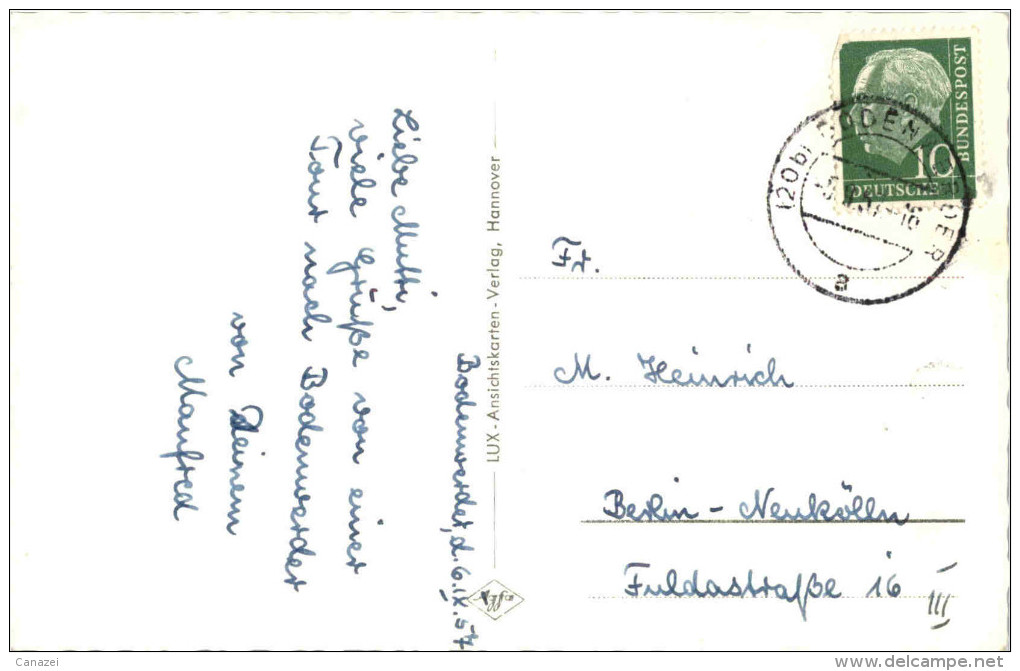 Bodenwerder, d. 6.IX.57
Liebe Mutti,
viele Grüße von einer
Tour nach Bodenwerder
von Deinem
Manfred
LUX - Ansichtskarten - Verlag, Hannover
DEUTSCHE
BUNDESPOST
10
(20b) BODENWERDER
a
Fr.
M. Heinrich
Berlin - Neukölln
Fuldastraße 16 III
Canazei
www.delcampe.net